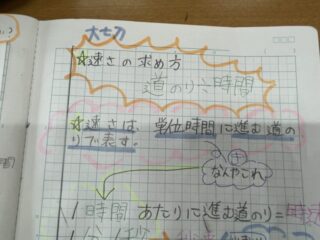 大切
☆速さの求め方
道のり÷時間
☆速さは、単位時間に進む道の
りで表す。
なんやこれ
1時間あたりに進む道のり=時速